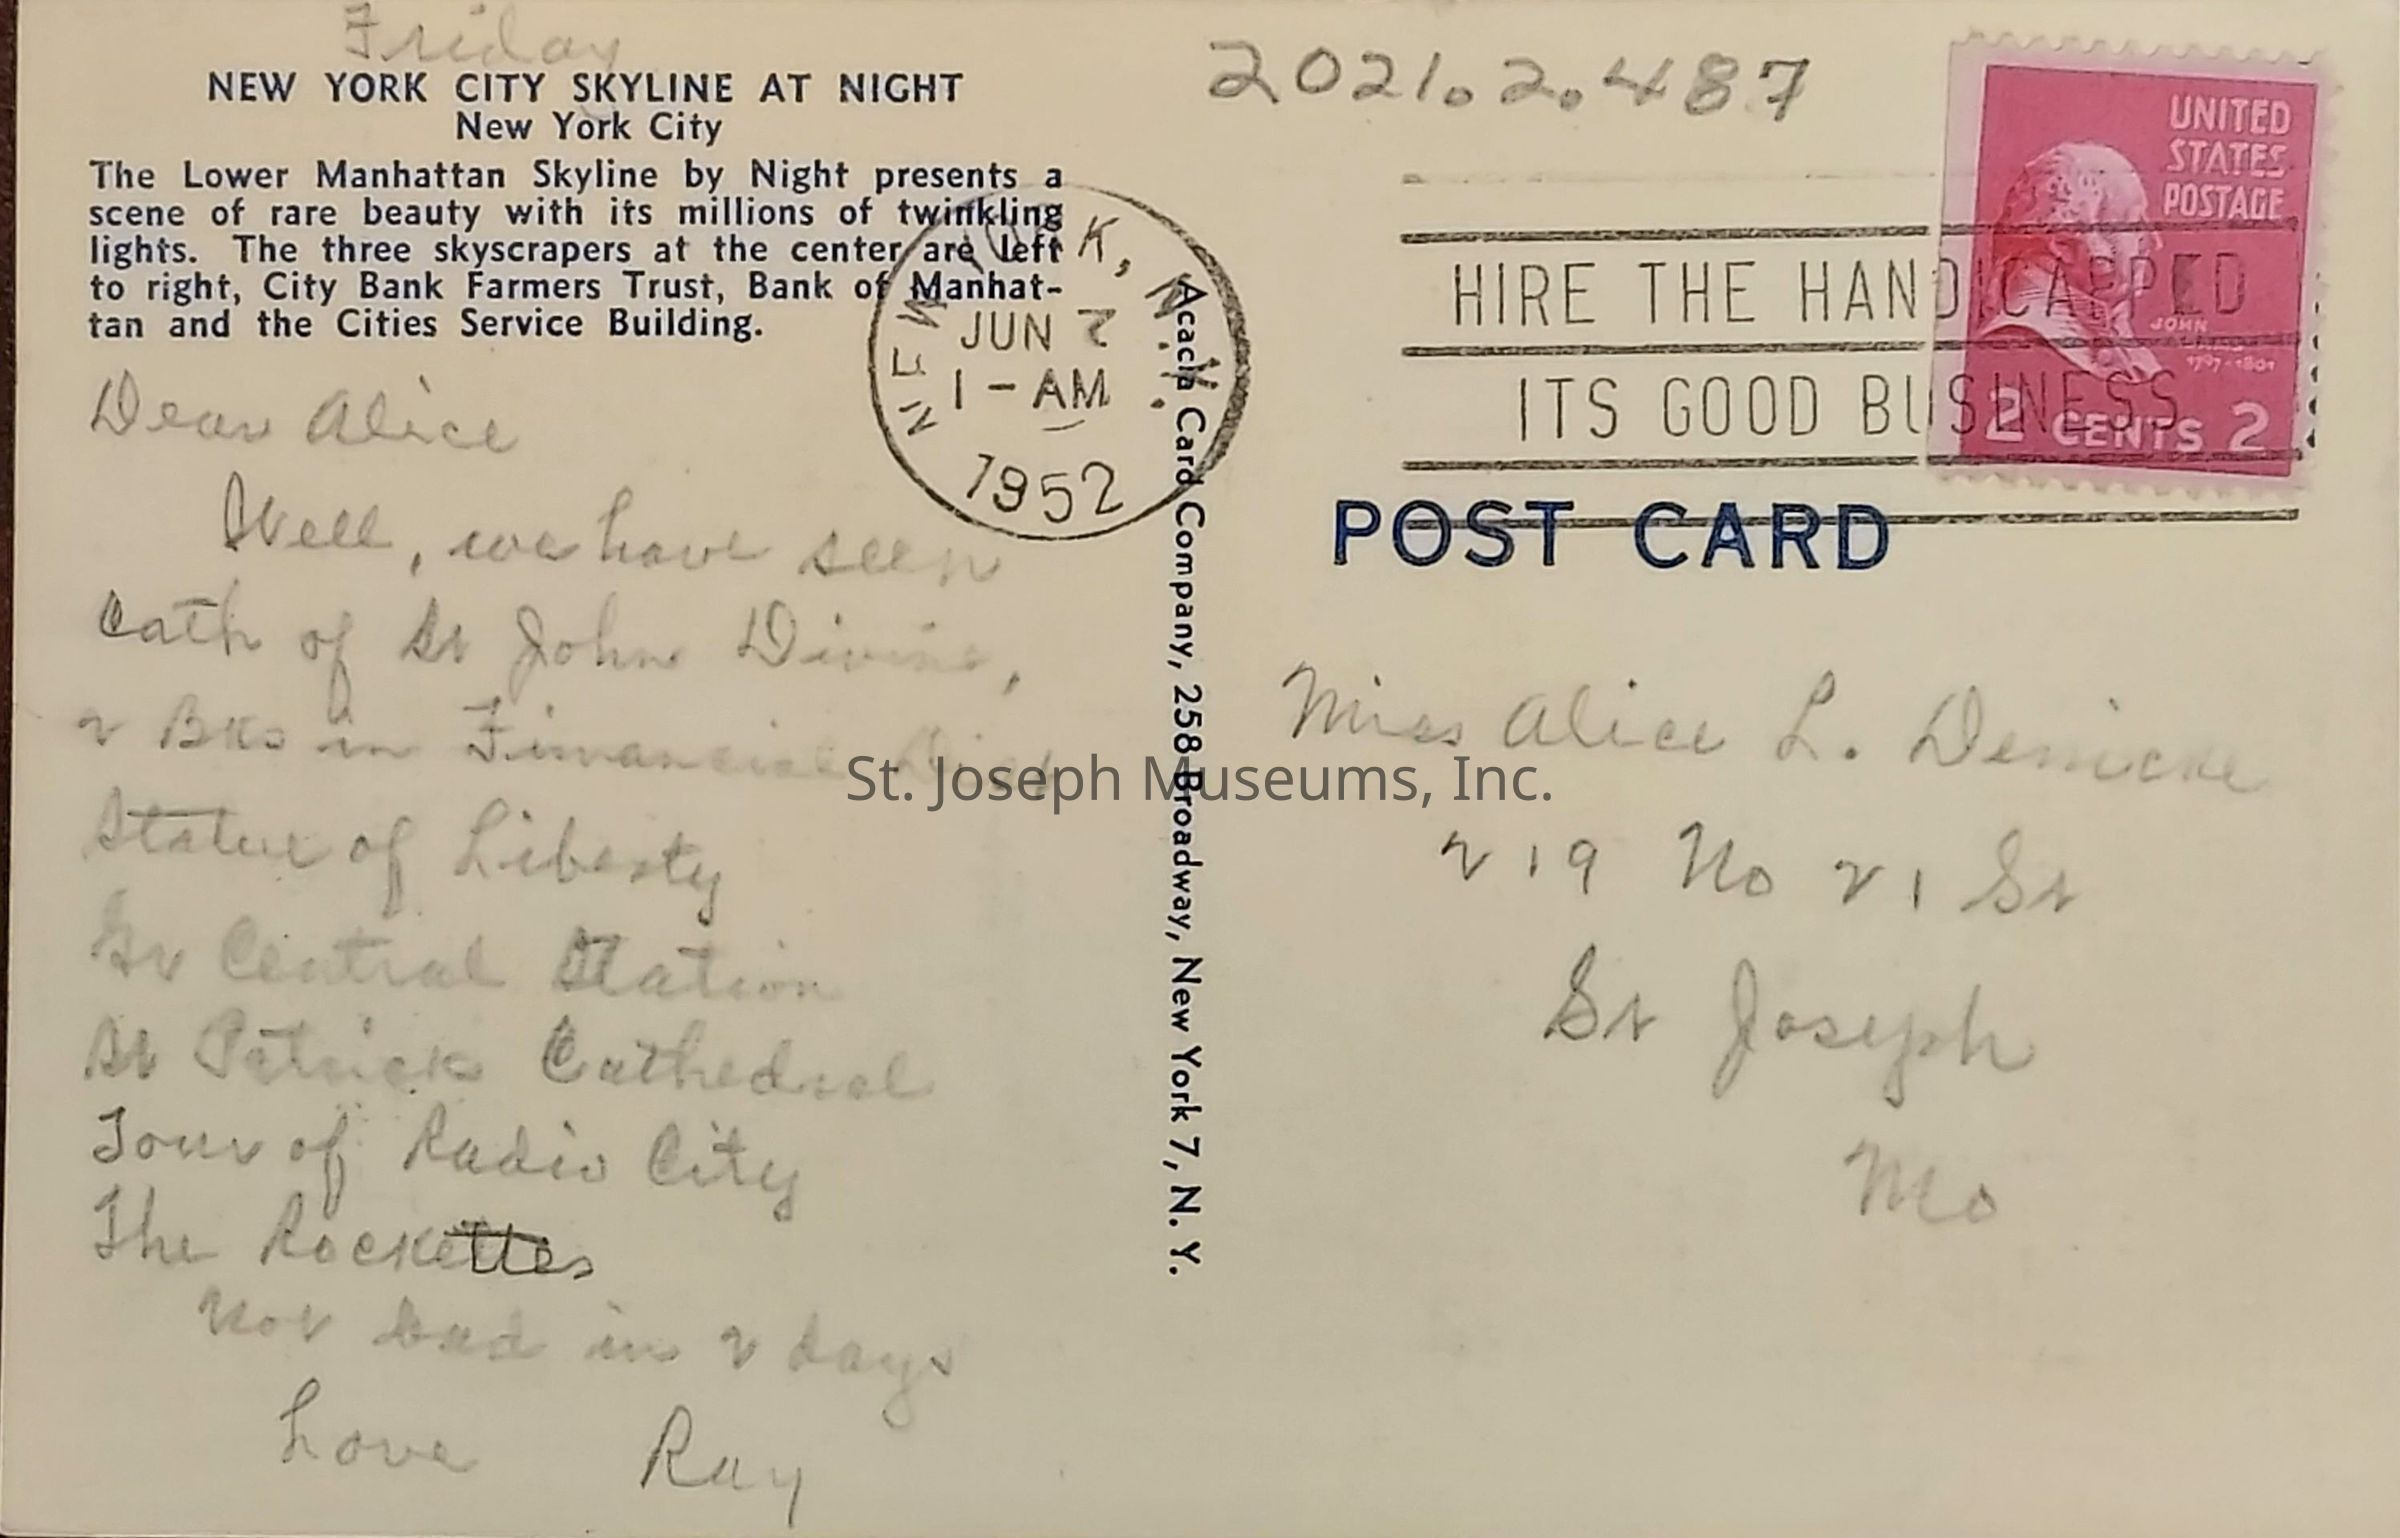 Friday
NEW YORK CITY SKYLINE AT NIGHT
New York City
The Lower Manhattan Skyline by Night presents a
scene of rare beauty with its millions of twinkling
lights. The three skyscrapers at the center are left
to right, City Bank Farmers Trust, Bank of Manhat-
tan and the Cities Service Building.
Dear Alice
Well, we have seen
Cath of St John Divine,
2 Bks in Financial Dist
Statue of Liberty
Gr Central Station
St Patrick Cathedral
Tour of Radio City
The Rockettes
Not bad in 2 days
Love Ray
NEW YORK, N.Y.
JUN 7
1-AM
1952
Acacia Card Company, 258 Broadway, New York 7, N. Y.
2021.2.487
HIRE THE HANDICAPPED
ITS GOOD BUSINESS
UNITED
STATES
POSTAGE
JOHN
1797-1801
2 CENTS 2
POST CARD
Miss Alice L. Denicke
219 No 21 St
St Joseph
Mo
St. Joseph Museums, Inc.